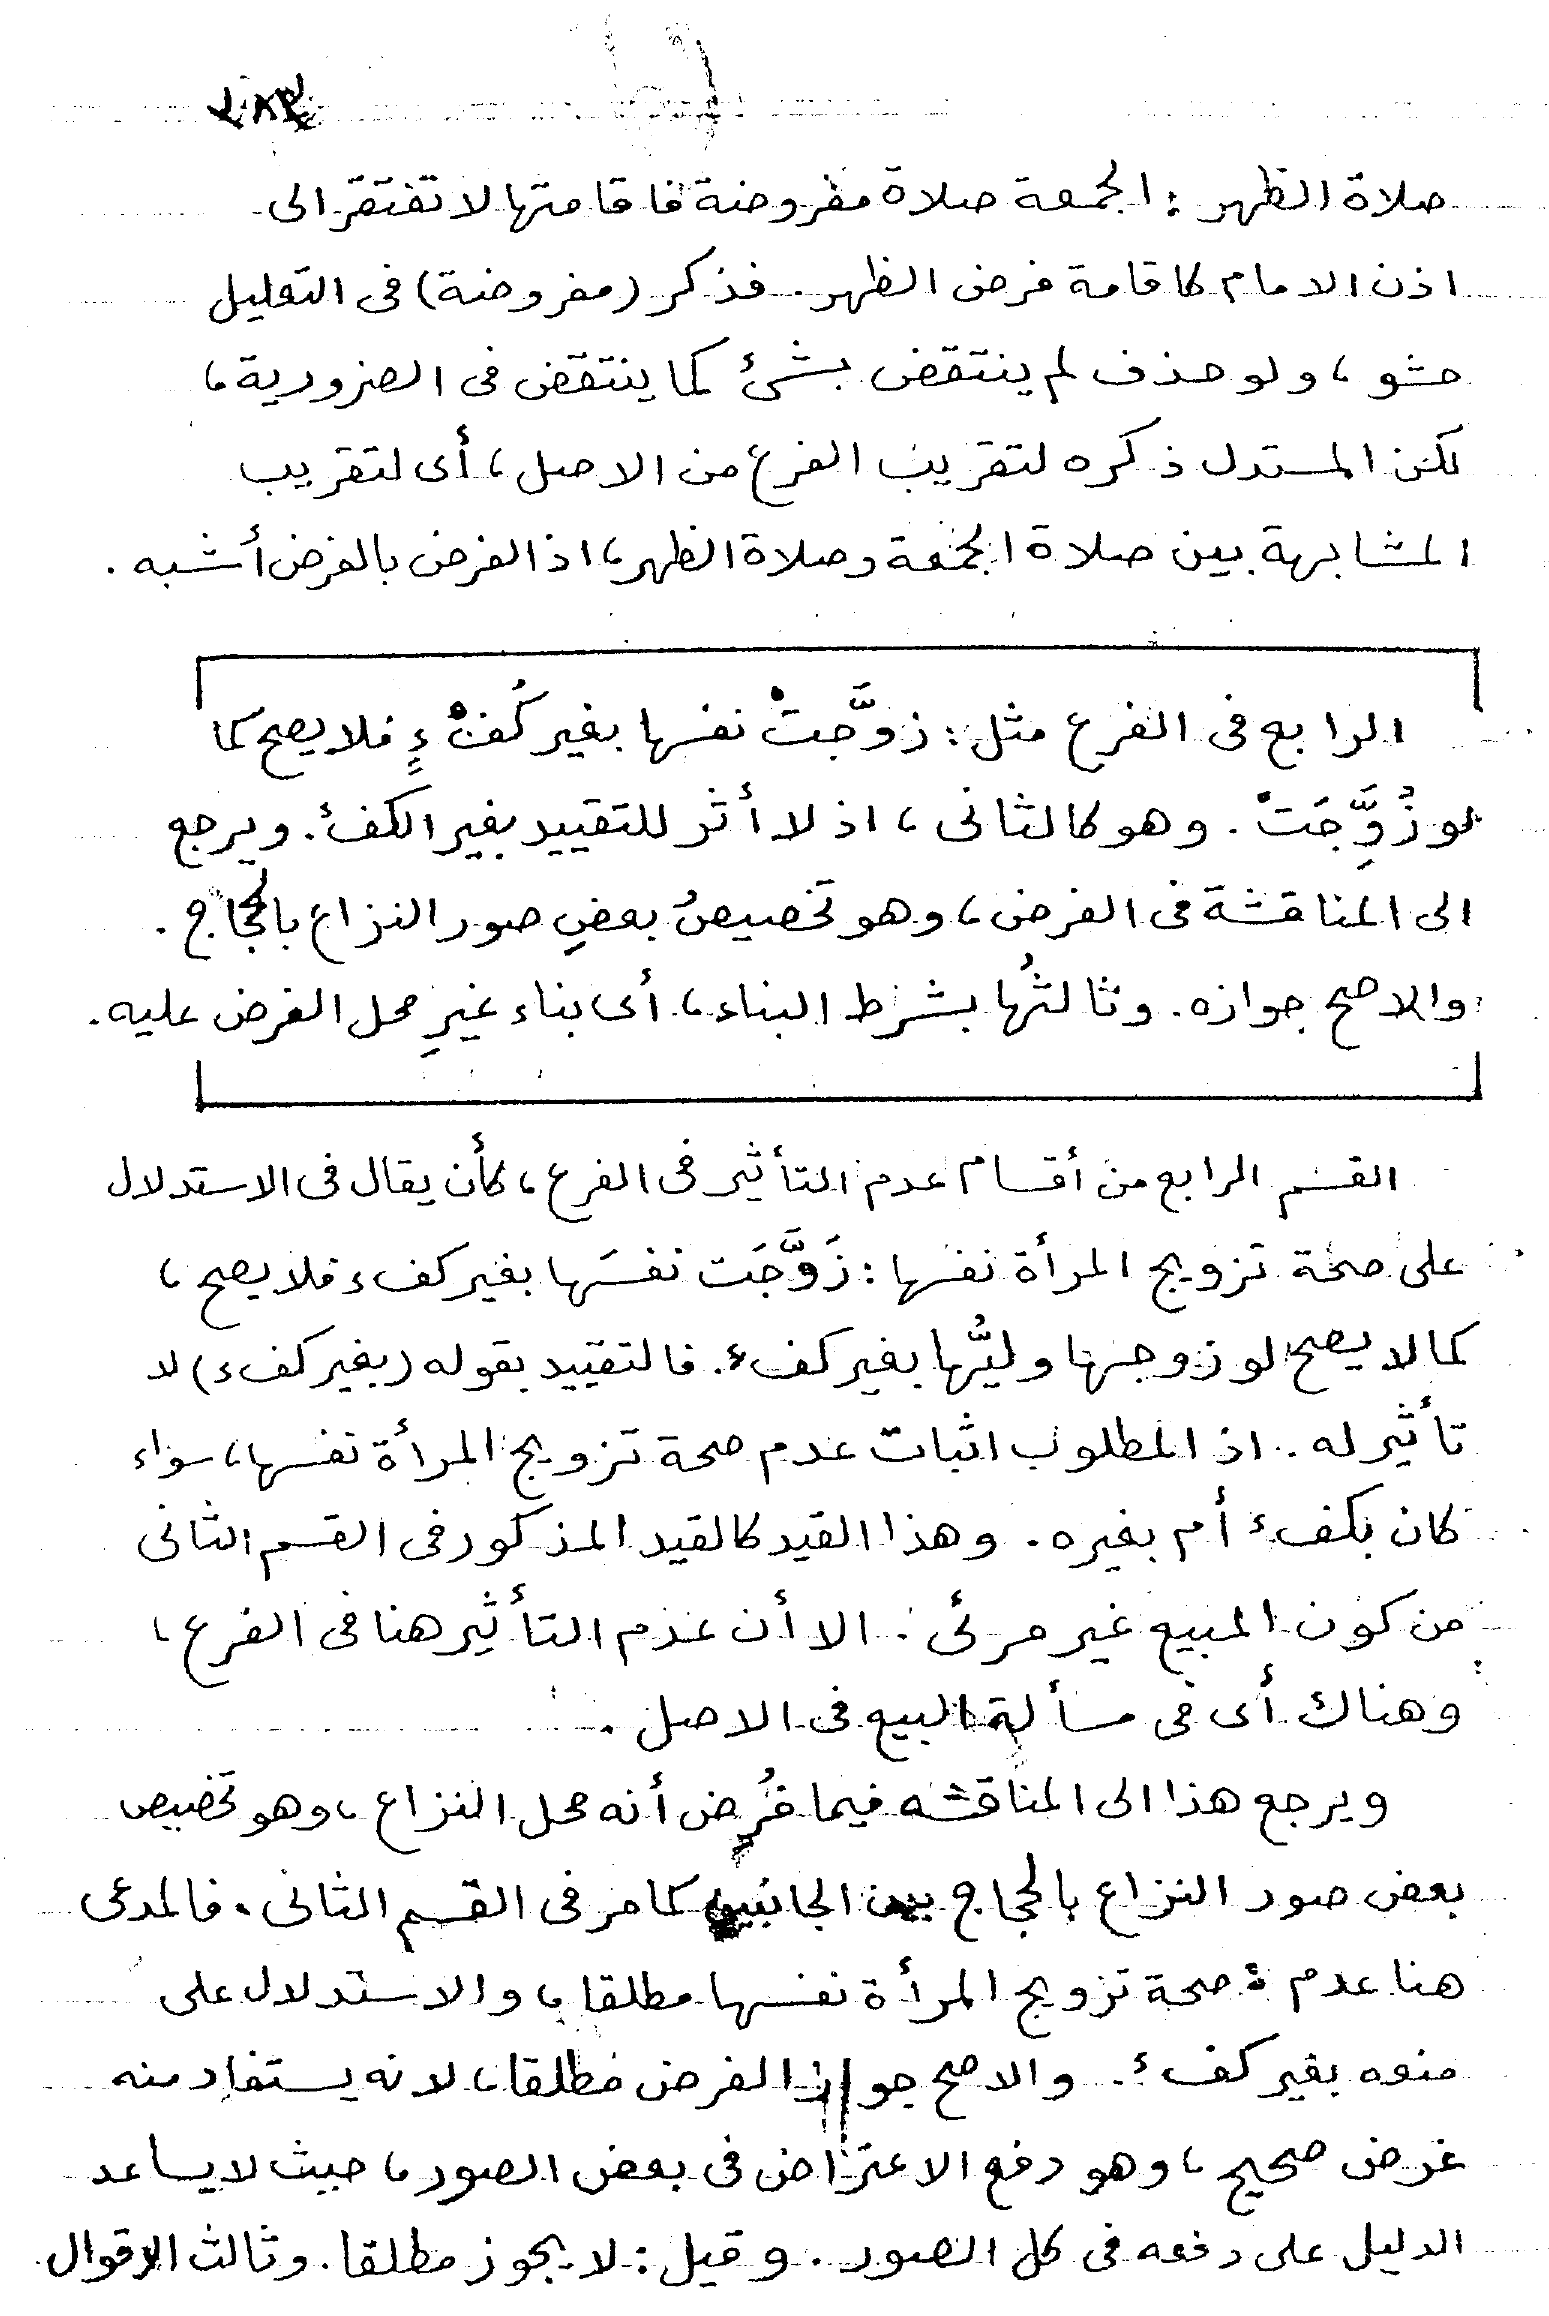 صلاة الظهر : الجمعة صلاة مفروضة فاقامتها لا تفتقر الى
اذن الامام كاقامة فرض الظهر . فذكر (مفروضة) فى التعليل
حشو ، ولو حذف لم ينتقض بشئ كما ينتقض فى الضرورية ،
لكن المستدل ذكره لتقريب الفرع من الاصل ، أى لتقريب
المشابهة بين صلاة الجمعة وصلاة الظهر ، اذ الفرض بالفرض أشبه .
الرابع فى الفرع مثل : زوَّجتْ نفسها بغير كُفْءٍ فلا يصح كما
لو زُوِّجَتْ . وهو كالثانى ، اذ لا أثر للتقييد بغير الكفء . ويرجع
الى المناقشة فى الفرض ، وهو تخصيصُ بعضِ صور النزاع بالحجاج .
والاصح جوازه . وثالثُها بشرط البناء ، أى بناء غيرِ محل الفرض عليه .
القسم الرابع من أقسام عدم التأثير فى الفرع ، كأن يقال فى الاستدلال
على صحة تزويج المرأة نفسها : زَوَّجَت نفسَها بغير كفء فلا يصح ،
كما لا يصح لو زوجها وليُّها بغير كفء . فالتقييد بقوله (بغير كفء) لا
تأثير له . اذ المطلوب اثبات عدم صحة تزويج المرأة نفسها ، سواء
كان بكفء أم بغيره . وهذا القيد كالقيد المذكور فى القسم الثانى
من كون المبيع غير مرئى . الا أن عدم التأثير هنا فى الفرع ،
وهناك أى فى مسألة البيع فى الاصل .
ويرجع هذا الى المناقشه فيما فُرِض أنه محل النزاع ، وهو تخصيص
بعض صور النزاع بالحجاج بين الجانبين كما مر فى القسم الثانى . فالمدعى
هنا عدم صحة تزويج المرأة نفسها مطلقا ، والاستدلال على
منعه بغير كفء . والاصح جواز الفرض مطلقا ، لانه يستفاد منه
غرض صحيح ، وهو دفع الاعتراض فى بعض الصور ، حيث لا يساعد
الدليل على دفعه فى كل الصور . وقيل : لا يجوز مطلقا . وثالث الاقوال